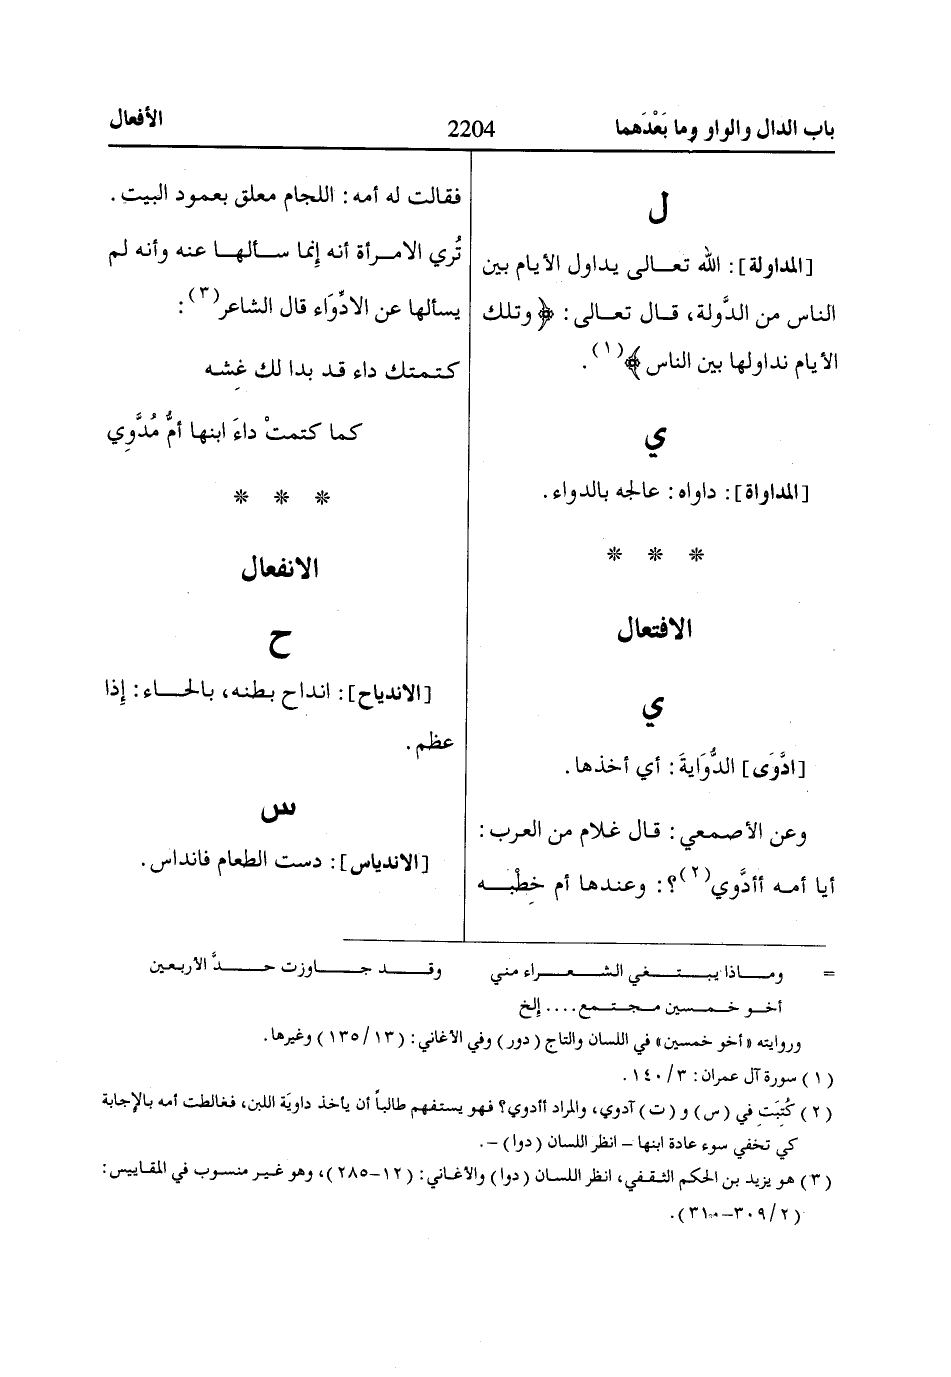 باب الدال والواو وما بَعْدَهما
2204
الأفعال
ل
[المداولة]: الله تعالى يداول الأيام بين
الناس من الدَّولة، قال تعالى: ﴿وتلك
الأيام نداولها بين الناس﴾(١).
ي
[المداواة]: داواه: عالجه بالدواء.
* * *
الافتعال
ي
[ادَّوَى] الدُّوَايةَ: أي أخذها.
وعن الأصمعي: قال غلام من العرب:
أيا أمه أأدَّوي(٢)؟: وعندها أم خِطْبه
فقالت له أمه: اللجام معلق بعمود البيت.
تُري الامرأة أنه إنما سألها عنه وأنه لم
يسألها عن الادِّوَاء قال الشاعر(٣):
كتمتك داء قد بدا لك غِشه
كما كتمتْ داءَ ابنها أمُّ مُدَّوِي
* * *
الانفعال
ح
[الاندياح]: انداح بطنه، بالحاء: إذا
عظم.
س
[الاندياس]: دست الطعام فانداس.
= وماذا يبتغي الشعراء مني وقد جاوزت حدَّ الأربعين
أخو خمسين مجتمع.... إلخ
وروايته «أخو خمسين» في اللسان والتاج (دور) وفي الأغاني: (١٣/ ١٣٥) وغيرها.
(١) سورة آل عمران: ٣/ ١٤٠.
(٢) كُتِبَتِ في (س) و (ت) آدوي، والمراد أأدوي؟ فهو يستفهم طالباً أن يأخذ داويَة اللبن، فغالطت أمه بالإجابة
كي تخفي سوء عادة ابنها – انظر اللسان (دوا) –.
(٣) هو يزيد بن الحكم الثقفي، انظر اللسان (دوا) والأغاني: (١٢–٢٨٥)، وهو غير منسوب في المقاييس:
(٢/ ٣٠٩–٣١٠).